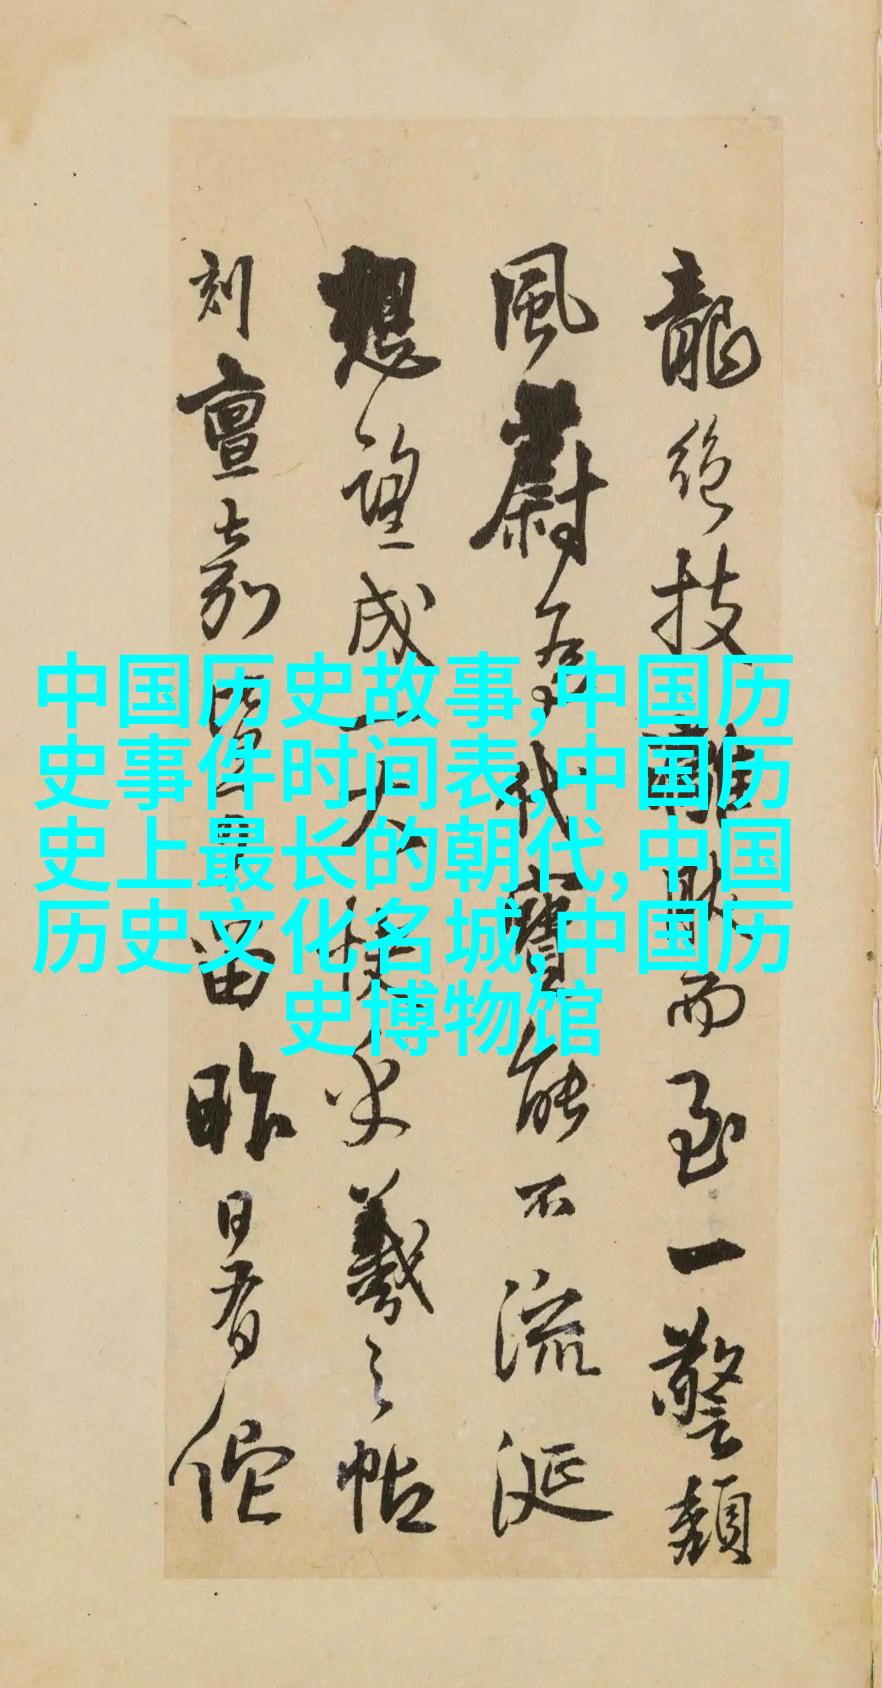 龍絕技雖 而至一警頹
風蔚 代寶能不流涎
想望成一夫 史羲之帖
刻 嘉 留昨日看
中国历史故事,中国历
史事件时间表,中国历
史上最长的朝代,中国
历史文化名城,中国历
史博物馆